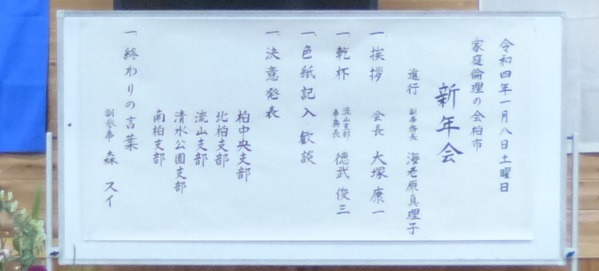 令和四年一月八日土曜日
家庭倫理の会柏市
新年会
進行 副事務長 海老原真理子
一 挨拶 会長 大塚康一
一 乾杯 流山支部事務長 徳武俊三
一 色紙記入 歓談
一 決意発表
柏中央支部
北柏支部
流山支部
清水公園支部
南柏支部
一 終わりの言葉
森 スイ